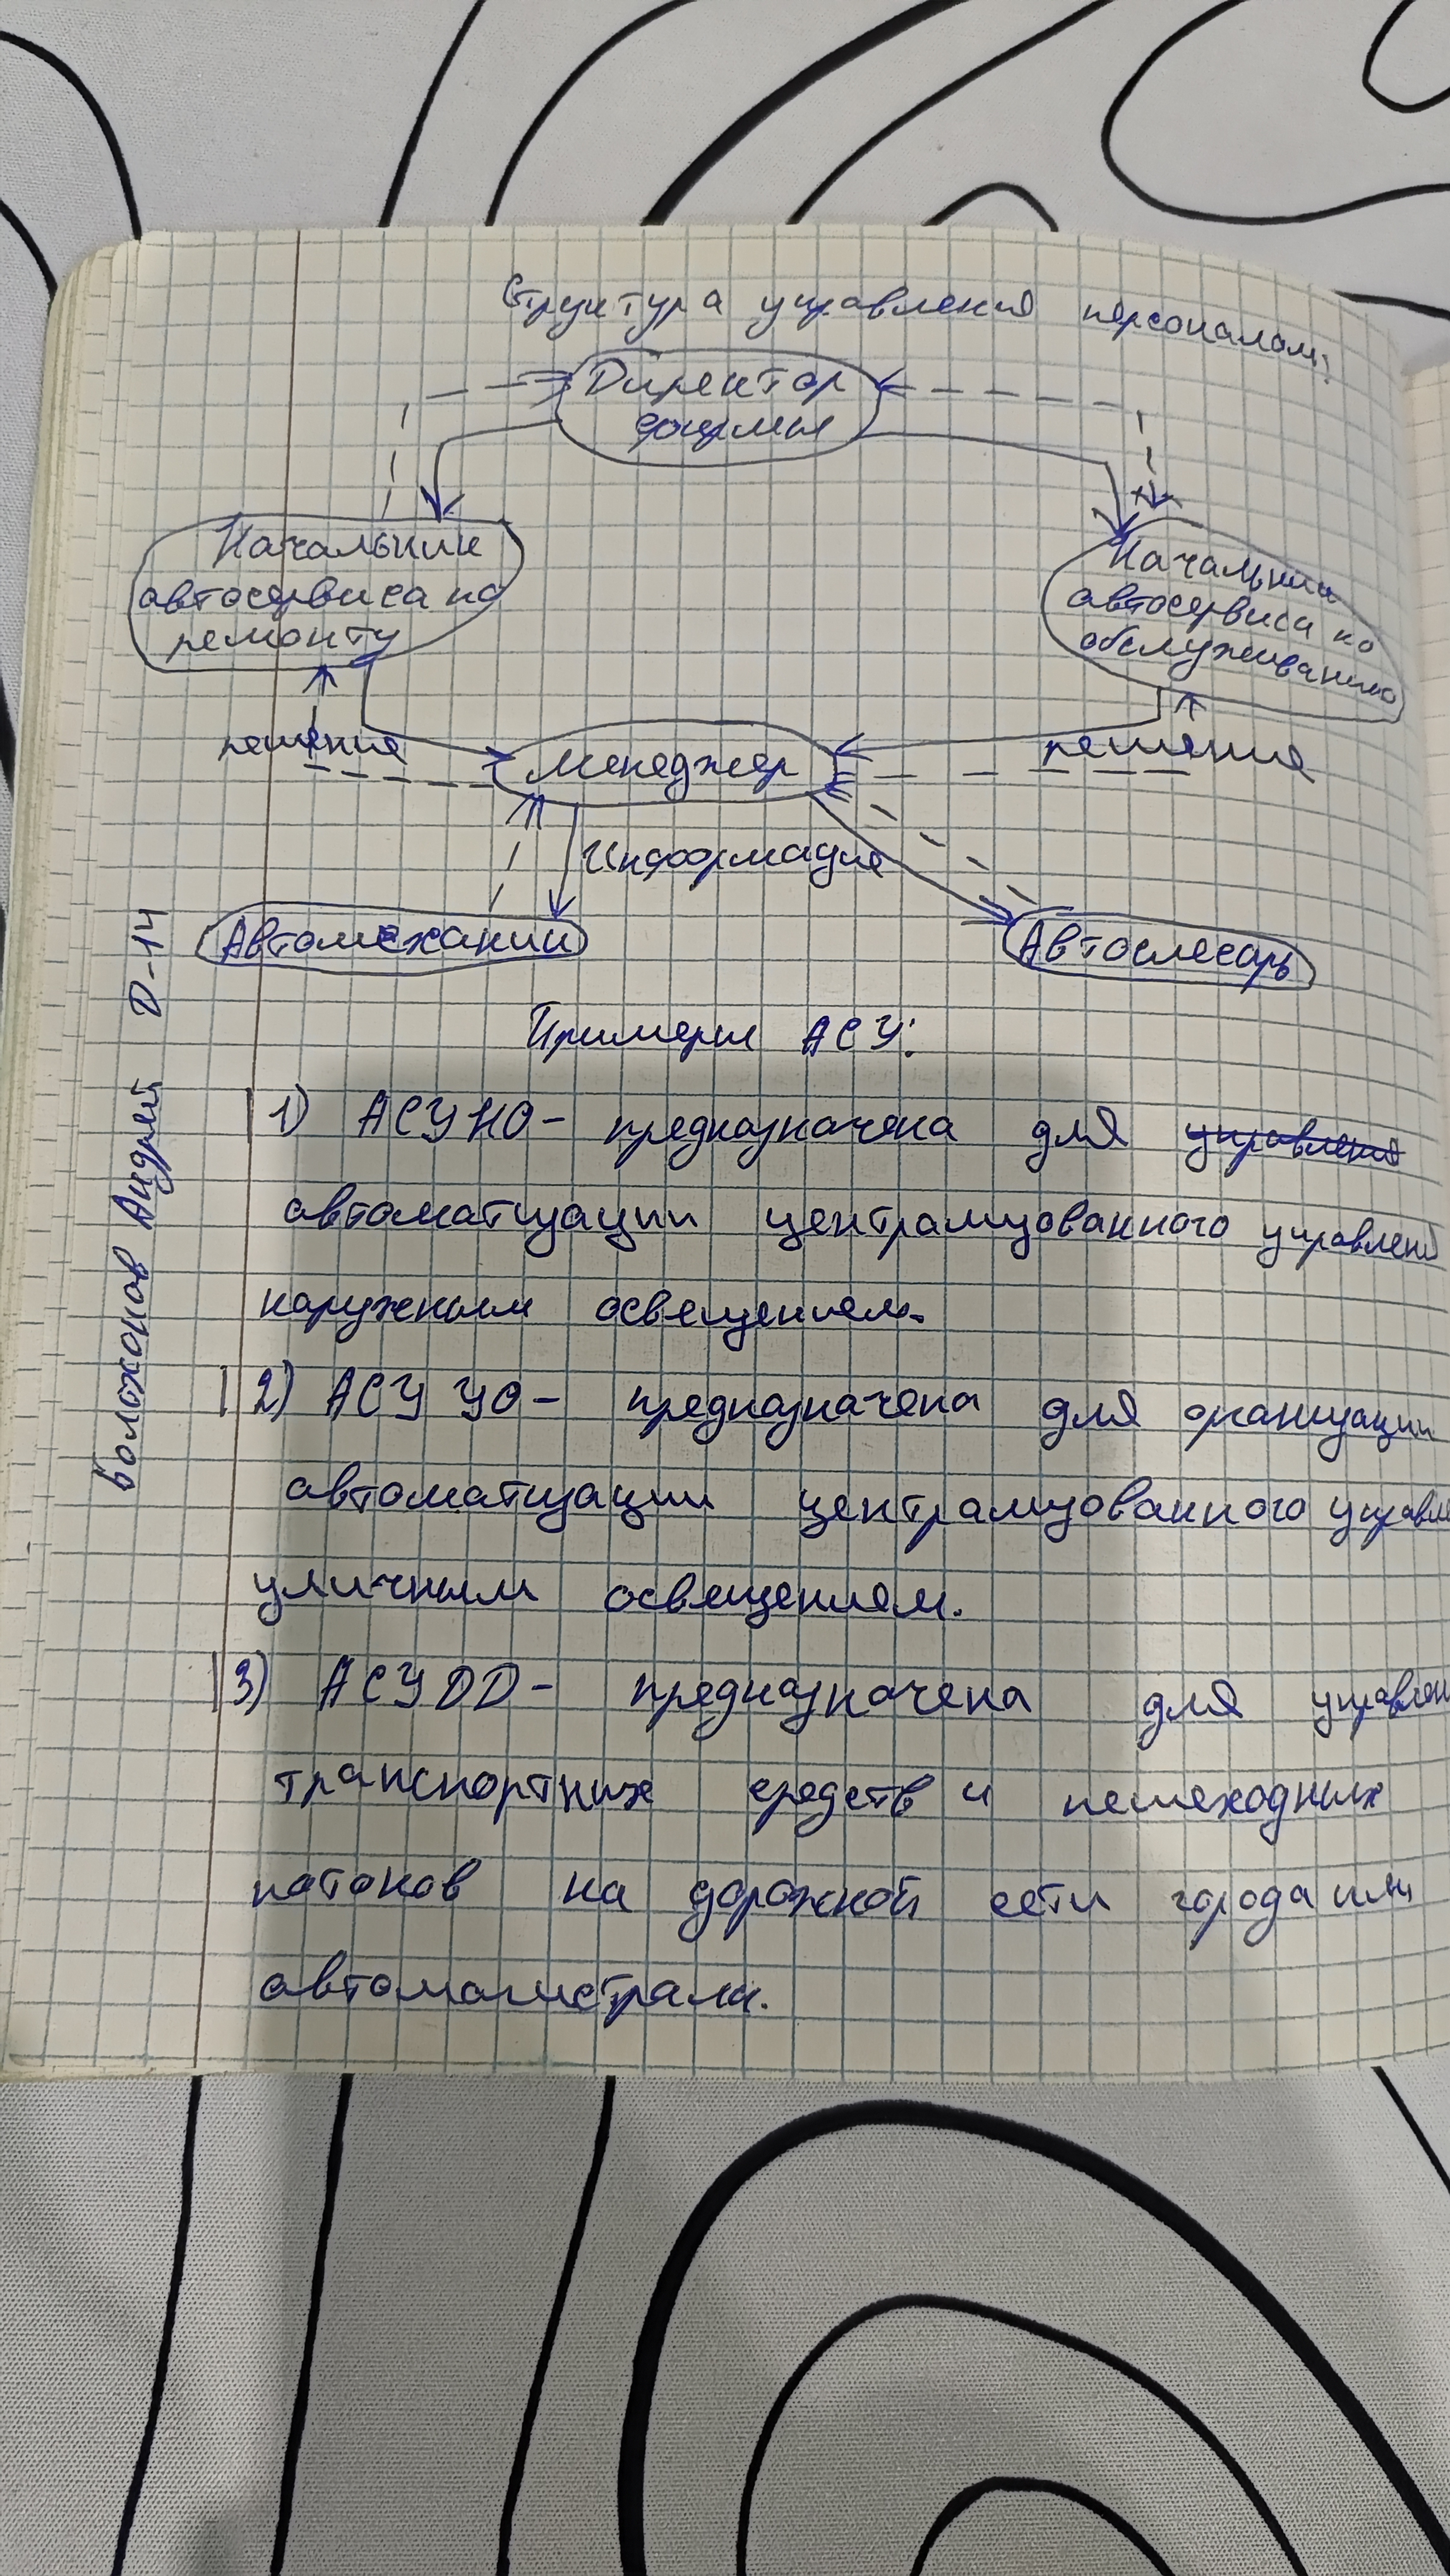 Структура управления персоналом:
Директор
фирмы
Начальник
автосервиса по
ремонту
Начальник
автосервиса по
обслуживанию
решение
Менеджер
решение
Информация
Автомеханик
Автослесарь
Примеры АСУ:
1) АСУНО - предназначена для управления
автоматизации централизованного управлени
наружным освещением.
2) АСУ УО - предназначена для
автоматизации централизованного управле
уличным освещением.
3) АСУДД - предназначена для управлен
транспортних средств и пешеходных
потоков на дорожной сети города или
автомагистрали.
Волохонов Андрей D-14